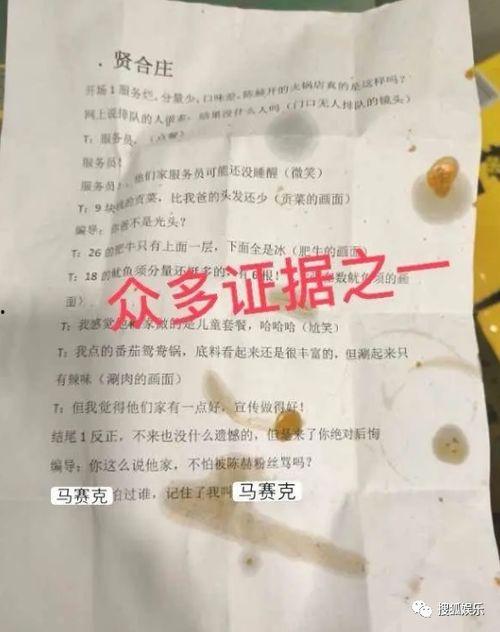 . 贤合庄
开场1服务烂,分量少,口味差,陈赫开的火锅店真的是这样吗?
网上说排队的人很多,结果没什么人吗(门口无人排队的镜头)
T:服务员,(点餐)
服务员!
服务员!,他们家服务员可能还没睡醒(微笑)
T:9块钱的贡菜,比我爸的头发还少(贡菜的画面)
编导:你爸不是光头?
T:26的肥牛只有上面一层,下面全是冰(肥牛的画面)
T:18的鱿鱼须分量还挺多的,有6根!数鱿鱼须的画
面)
众多证据之一
T:我感觉他们家做的是儿童套餐,哈哈哈(尬笑)
T:我点的番茄鸳鸯锅,底料看起来还是很丰富的,但涮起来只
有辣味(涮肉的画面)
T:但我觉得他们家有一点好,宣传做得好!
结尾1反正,不来也没什么遗憾的,但是来了你绝对后悔
编导:你这么说他家,不怕被陈赫粉丝骂吗?
马赛克怕过谁,记住了我叫马赛克
搜狐娱乐